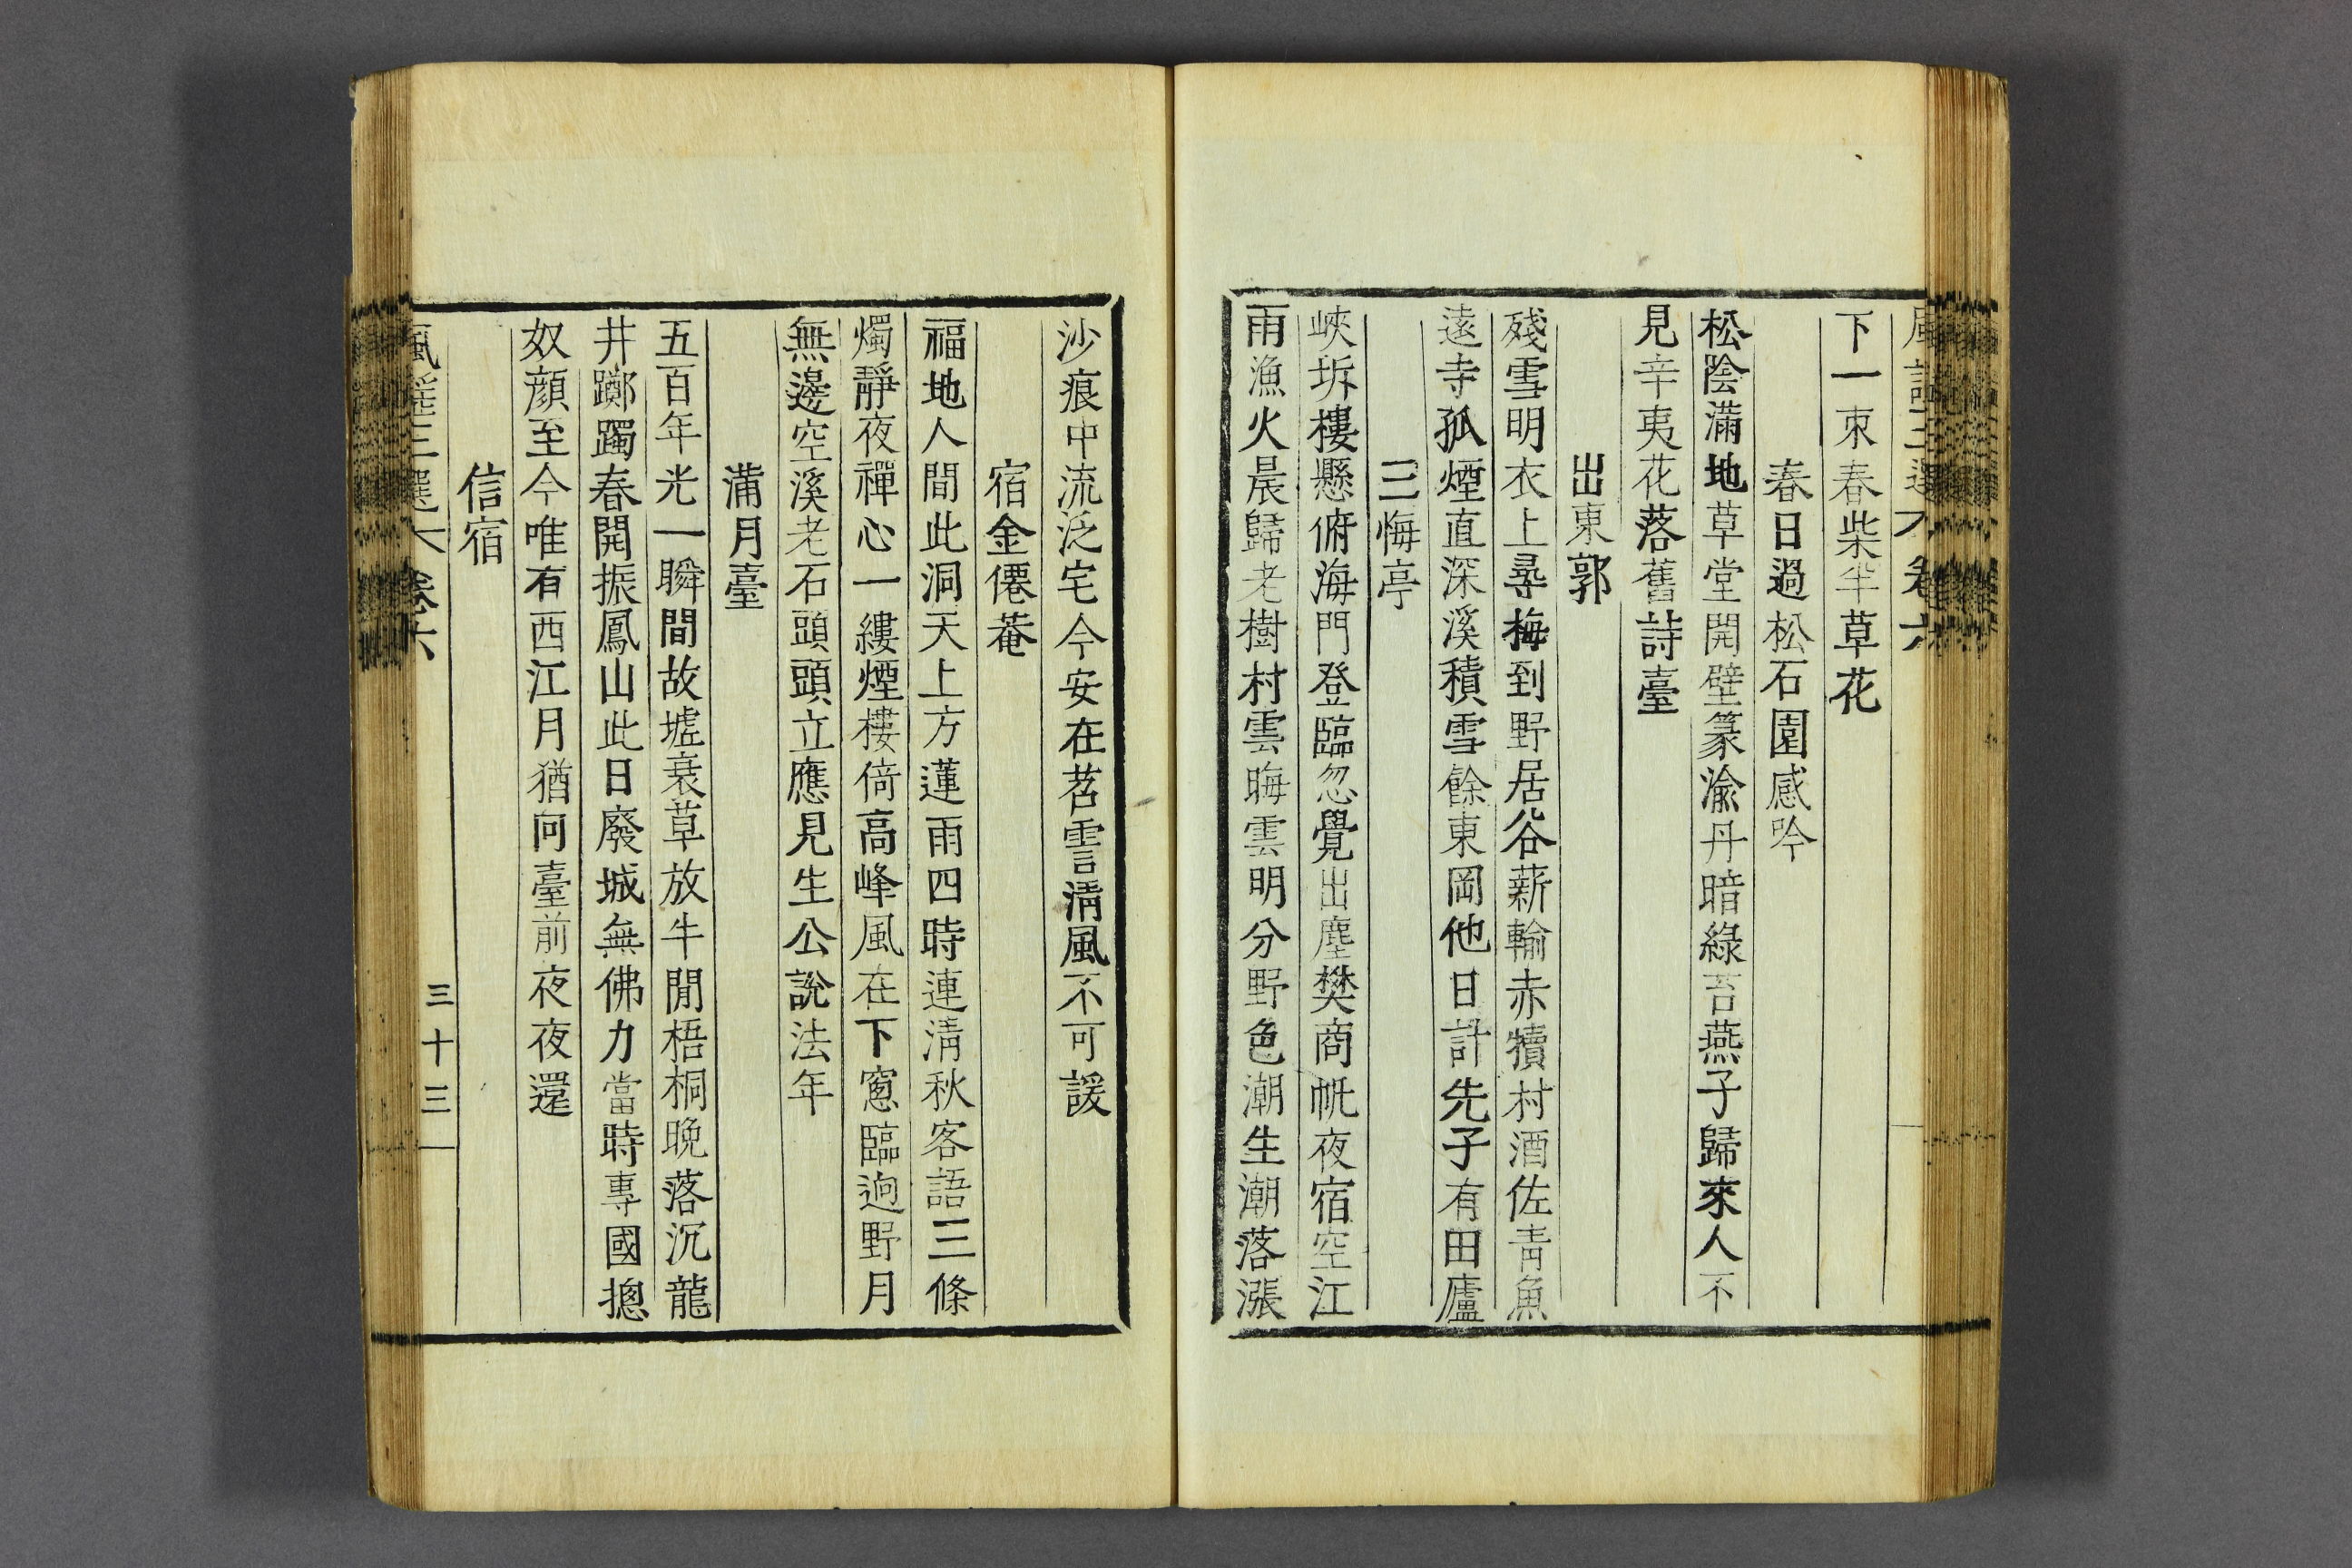 下一束春柴半草花
春日過松石園感吟
松陰滿地草堂開壁篆渝丹暗綠苔燕子歸來人不
見辛夷花落舊詩臺
出東郭
殘雪明衣上尋梅到野居谷薪輸赤犢村酒佐青魚
遠寺孤煙直深溪積雪餘東岡他日計先子有田廬
三悔亭
峽坼樓懸俯海門登臨忽覺出塵樊商帆夜宿空江
雨漁火晨歸老樹村雲晦雲明分野色潮生潮落漲
沙痕中流泛宅今安在苕霅淸風不可諼
宿金僊菴
福地人間此洞天上方蓮雨四時連淸秋客語三條
燭靜夜禪心一縷煙樓倚高峰風在下窻臨逈野月
無邊空溪老石頭頭立應見生公說法年
蒲月臺
五百年光一瞬間故墟衰草放牛閒梧桐晚落沉龍
井躑躅春開振鳳山此日廢城無佛力當時專國摠
奴顔至今唯有西江月猶向臺前夜夜還
信宿
風謠三選 卷六
三十三